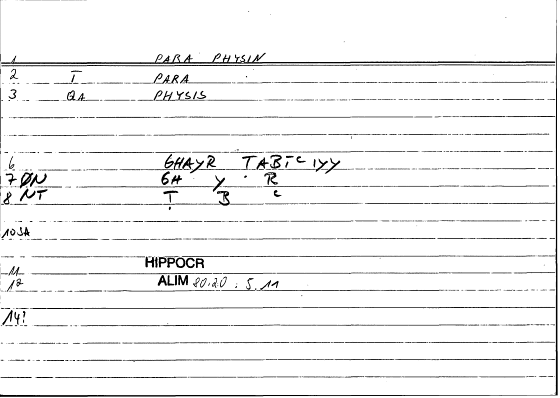 1 PARA PHYSIN
2 T PARA
3 QA PHYSIS
6 GHAYR ṬABĪʿIYY
7 ØN GH Y R
8 NT Ṭ B ʿ
10 JA
11 HIPPOCR
12 ALIM 80.20 : 5.11
14?